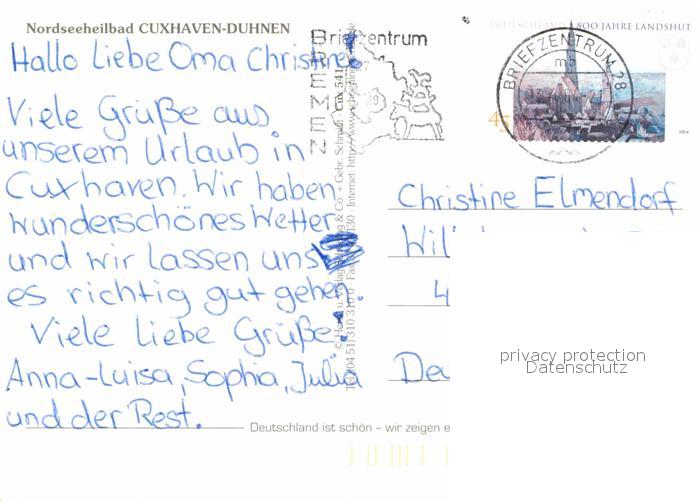 Nordseeheilbad CUXHAVEN-DUHNEN
Hallo Liebe Oma Christine!
Viele Grüße aus
unserem Urlaub in
Cuxhaven. Wir haben
wunderschönes Wetter
und wir lassen uns
es richtig gut gehen.
Viele liebe Grüße!
Anna-Luisa, Sophia, Julia
und der Rest.
Briefzentrum
BREMEN
28
DEUTSCHLAND 800 JAHRE LANDSHUT
45
BRIEFZENTRUM 28
mb
Christine Elmendorf
4
privacy protection
Datenschutz
Deutschland ist schön – wir zeigen e